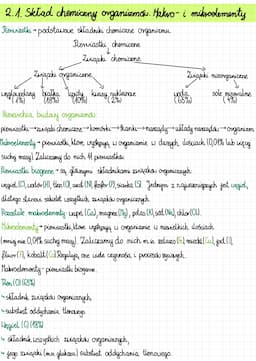 2.1. Skład chemiczny organizmów. Makro- i mikroelementy
Pierwiastki - podstawowe składniki chemiczne organizmu.
Pierwiastki chemiczne
Związki chemiczne
Związki organiczne Związki nieorganiczne
węglowodany białka lipidy kwasy nukleinowe woda sole mineralne
(1%) (18%) (10%) (2%) (65%) (4%)
Hierarchia budowy organizmów
pierwiastki → związki chemiczne → komórki → tkanki → narządy → układy narządów → organizm
Makroelementy - pierwiastki, które występują w organizmie w dużych ilościach (0,01% lub więcej
suchej masy). Zaliczamy do nich 11 pierwiastków.
Pierwiastki biogenne - są głównymi składnikami związków organicznych:
węgiel (C), wodór (H), tlen (O), azot (N), fosfor (P), siarka (S). Jednym z najważniejszych jest węgiel,
dlatego stanowi szkielet wszystkich związków organicznych.
Pozostałe makroelementy: wapń (Ca), magnez (Mg), potas (K), sód (Na), chlor (Cl).
Mikroelementy - pierwiastki, które występują w organizmie w niewielkich ilościach
(mniej niż 0,01% suchej masy). Zaliczamy do nich m.in. żelazo (Fe), miedź (Cu), jod (I),
fluor (F), kobalt (Co)
Makroelementy - pierwiastki biogenne.
Tlen (O) (65%)
- składnik związków organicznych,
- substrat oddychania tlenowego.
Węgiel (C) (18%)
- składnik wszystkich związków organicznych,
- jego związki (m.in. glukoza) substrat oddychania tlenowego.